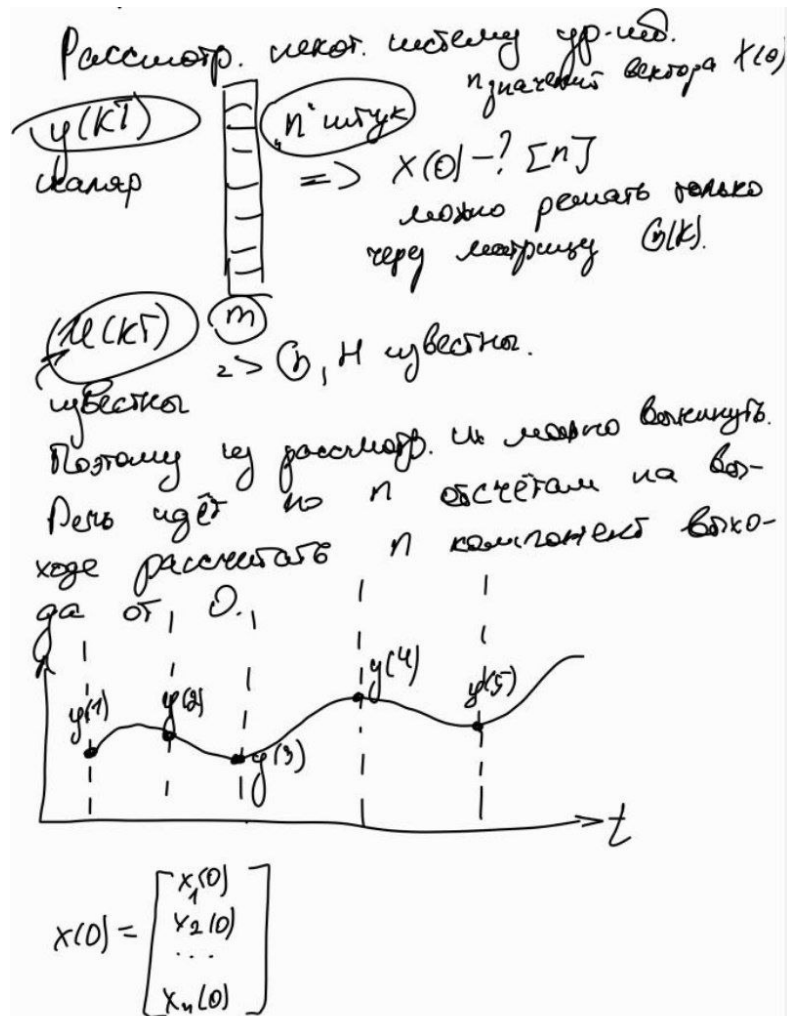 Рассмотр. некот. систему ур-ий.
n значений вектора X(0)
y(kT) "n" штук
скаляр => X(0)-? [n]
можно решать только
через матрицу G(k).
u(kT) m
=> G, H известны.
известны
Поэтому из рассмотр. их можно выкинуть.
Речь идёт по n отсчётам на вы-
ходе рассчитать n компонент выхо-
да от 0.
y(1) y(2) y(3) y(4) y(5)
t
x(0) = [ x1(0)
x2(0)
...
xn(0) ]